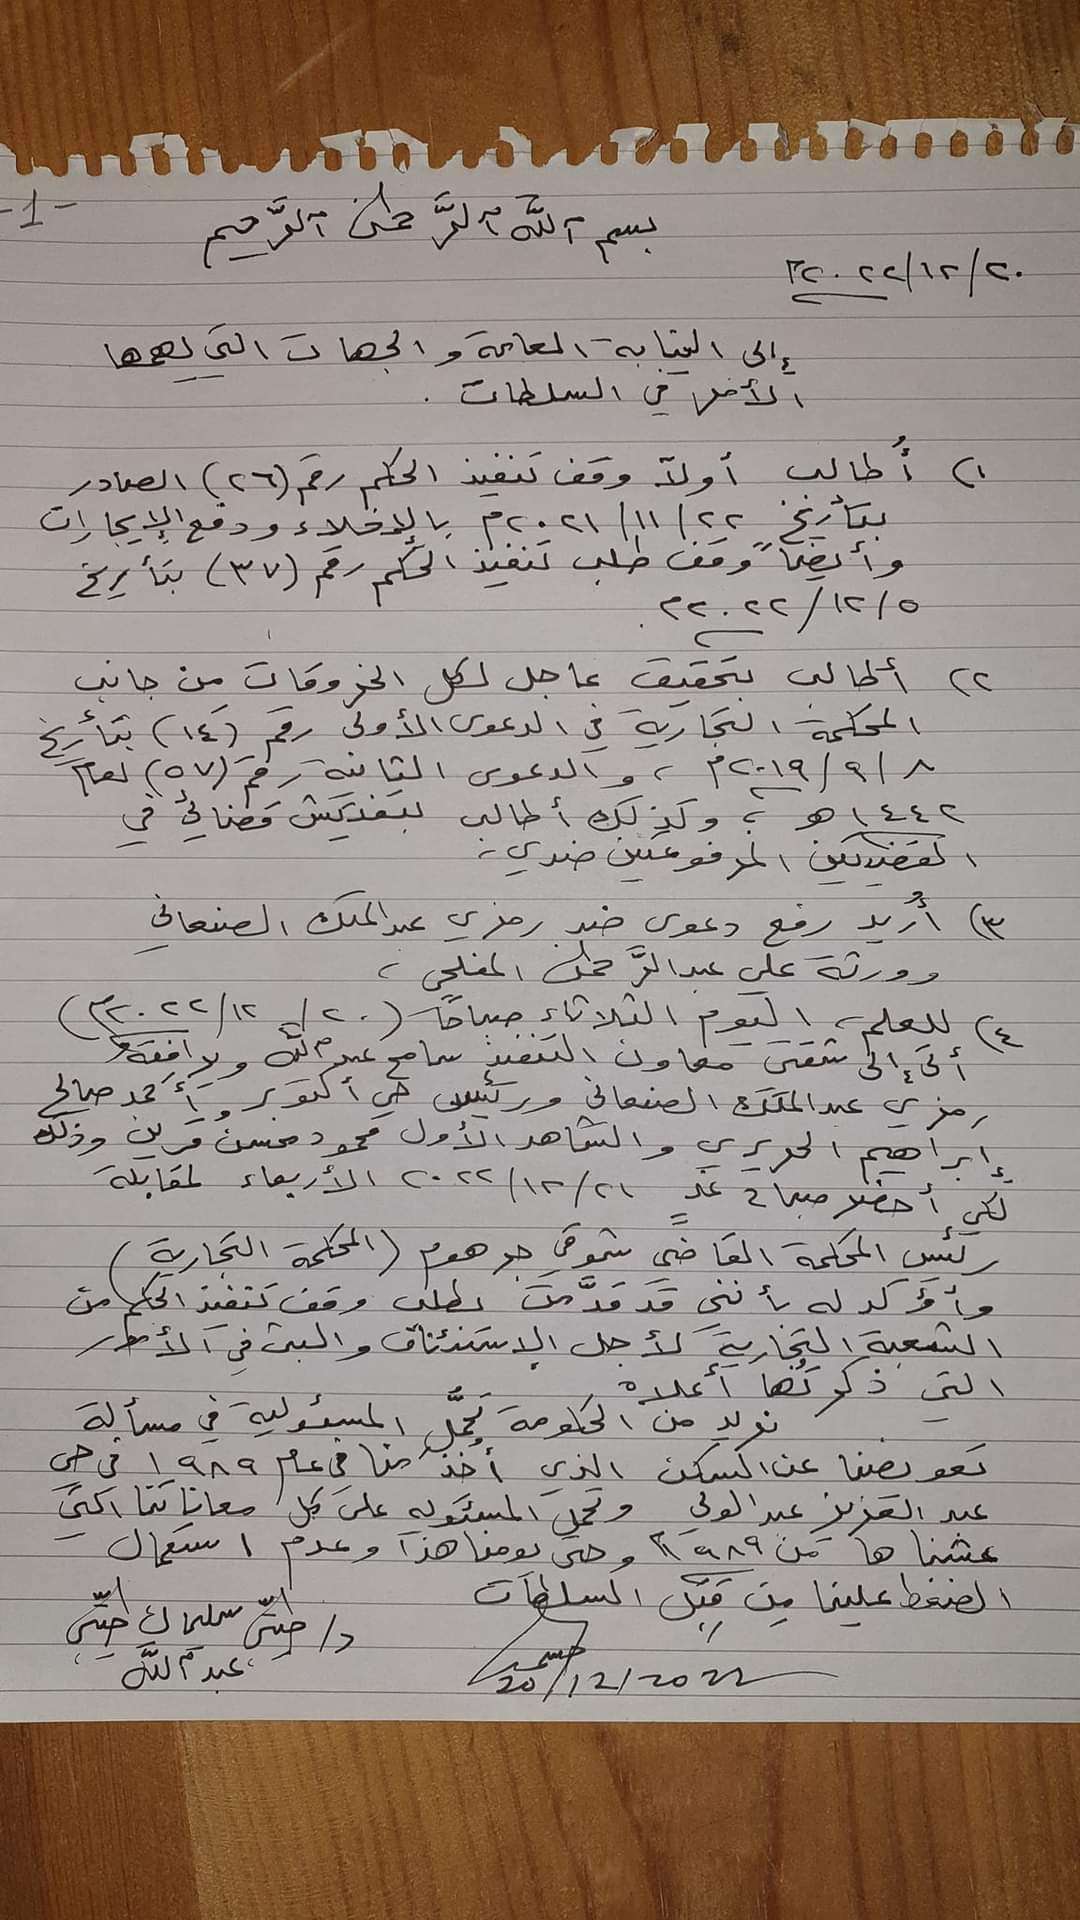 -1-
بسم الله الرَّحمن الرَّحيم
٢٠/١٢/٢٠٢٢م
إلى النيابة العامة والجهات التي يهمها
الأمر في السلطات .
١) أُطالب أولاً وقف تنفيذ الحكم رقم (٢٦) الصادر
بتأريخ ٢٢/١١/٢٠٢١م بالإخلاء ودفع الإيجارات
وأيضاً وقف طلب تنفيذ الحكم رقم (٣٧) بتأريخ
٥/١٢/٢٠٢٢م.
٢) أطالب بتحقيق عاجل لكل الخروقات من جانب
المحكمة التجارية في الدعوى الأولى رقم (١٤) بتأريخ
٨/٩/٢٠١٩م ، والدعوى الثانية رقم (٥٧) لعام
١٤٤٢هـ ؛ وكذلك أطالب بتفتيش قضائي في
القضيتين المرفوعتين ضدي ؛
٣) أُريد رفع دعوى ضد رمزي عبدالملك الصنعاني
وورثة علي عبدالرَّحمن المفلحي ،
٤) للعلم ، اليوم الثلاثاء صباحًا (٢٠/١٢/٢٠٢٢م)
أتى إلى شقتي معاون التنفيذ سامح عبدالله ويرافقه
رمزي عبدالملك الصنعاني ورئيس حي أكتوبر وأحمد صالح
إبراهيم الحريري والشاهد الأول محمود محسن قرين وذلك
لكي أحضر صباح غدٍ ٢١/١٢/٢٠٢٢ الأربعاء لمقابلة
رئيس المحكمة القاضي شوقي جرهوم (المحكمة التجارية)
وأؤكد له بأنني قد قدَّمت بطلب وقف تنفيذ الحكم من
الشعبة التجارية لأجل الإستئناف والبت في الأمور
التي ذكرتُها أعلاه
نريد من الحكومة تحمُّل المسئولية في مسألة
تعويضنا عن السكن الذي أُخذ منا في عام ١٩٨٩ في حي
عبدالعزيز عبدالولي وتحمل المسئوليه على كل معاناتنا التي
عشناها من ١٩٨٩م وحتى يومنا هذا وعدم استعمال
الضغط علينا مِن قِبَل السلطات
د/ سليمان
عبدالله
20/12/2022